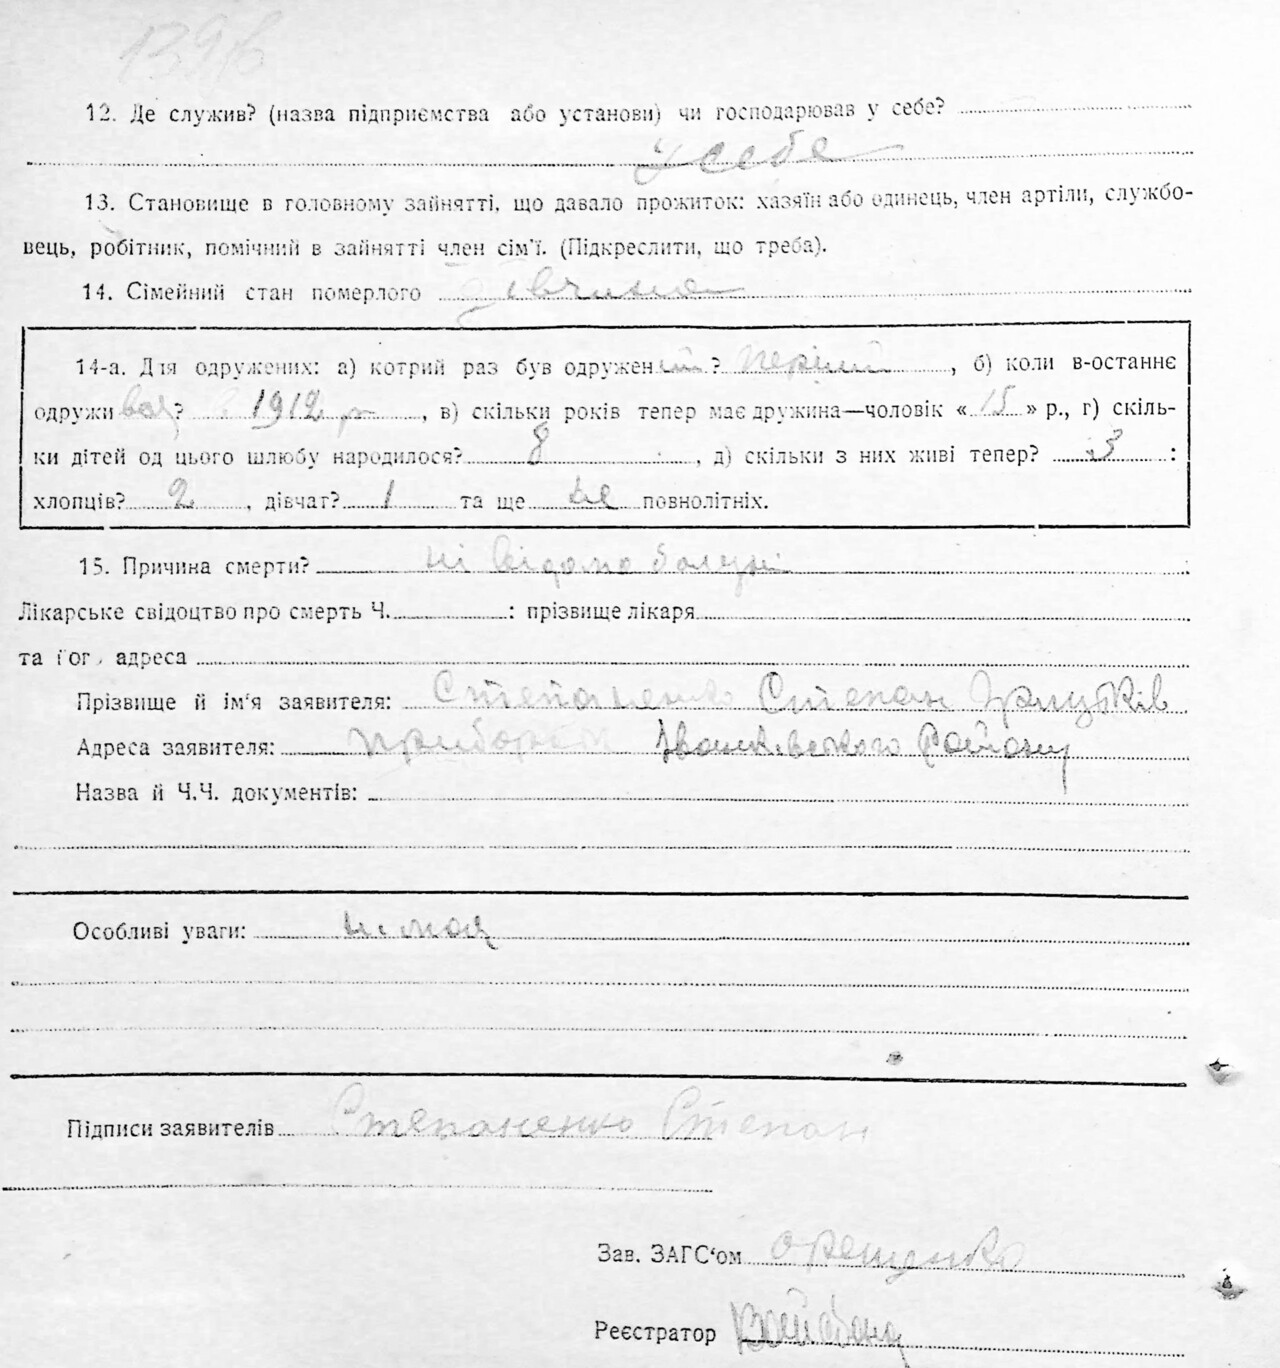 139
12. Де служив? (назва підприємства або установи) чи господарював у себе?
у себе
13. Становище в головному зайнятті, що давало прожиток: хазяїн або одинець, член артіли, службо-
вець, робітник, помічний в зайнятті член сім'ї. (Підкреслити, що треба).
14. Сімейний стан померлого
14-а. Для одружених: а) котрий раз був одружен ? перший , б) коли в-останнє
одружи вся? 1912 р , в) скільки років тепер має дружина—чоловік « 15 » р., г) скіль-
ки дітей од цього шлюбу народилося? 8 , д) скільки з них живі тепер? 3 :
хлопців? 2 , дівчат? 1 та ще не повнолітніх.
15. Причина смерти? ні відома
Лікарське свідоцтво про смерть Ч. : прізвище лікаря
та його адреса
Прізвище й ім'я заявителя: Степаненко Степан
Адреса заявителя: Іванківського Району
Назва й Ч.Ч. документів:
Особливі уваги: немая
Підписи заявителів Степаненко Степан
Зав. ЗАГС'ом
Реєстратор